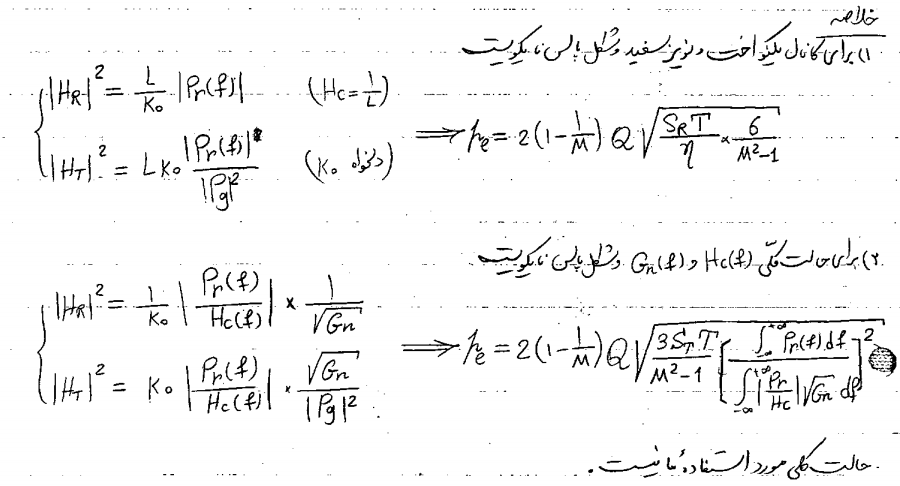 خلاصه
۱) برای کانال یکنواخت و نویز سفید و شکل پالس نایکویست
|H_R|² = L/K₀ |Pr(f)| (Hc = 1/L)
|H_T|² = L K₀ |Pr(f)|/|Pg|² (K₀ دلخواه)
⟹ Pe = 2(1 - 1/M) Q √(S_R T/η × 6/(M²-1))
۲) برای حالت کلّی Hc(f) و Gn(f) و شکل پالس نایکویست
|H_R|² = 1/K₀ |Pr(f)/Hc(f)| × 1/√Gn
|H_T|² = K₀ |Pr(f)/Hc(f)| · √Gn/|Pg|²
⟹ Pe = 2(1 - 1/M) Q √(3S_T T/(M²-1) [∫_{-∞}^{+∞} Pr(f) df / ∫_{-∞}^{+∞} |Pr/Hc| √Gn df]²)
حالت کلی مورد استفادهٔ ما نیست.